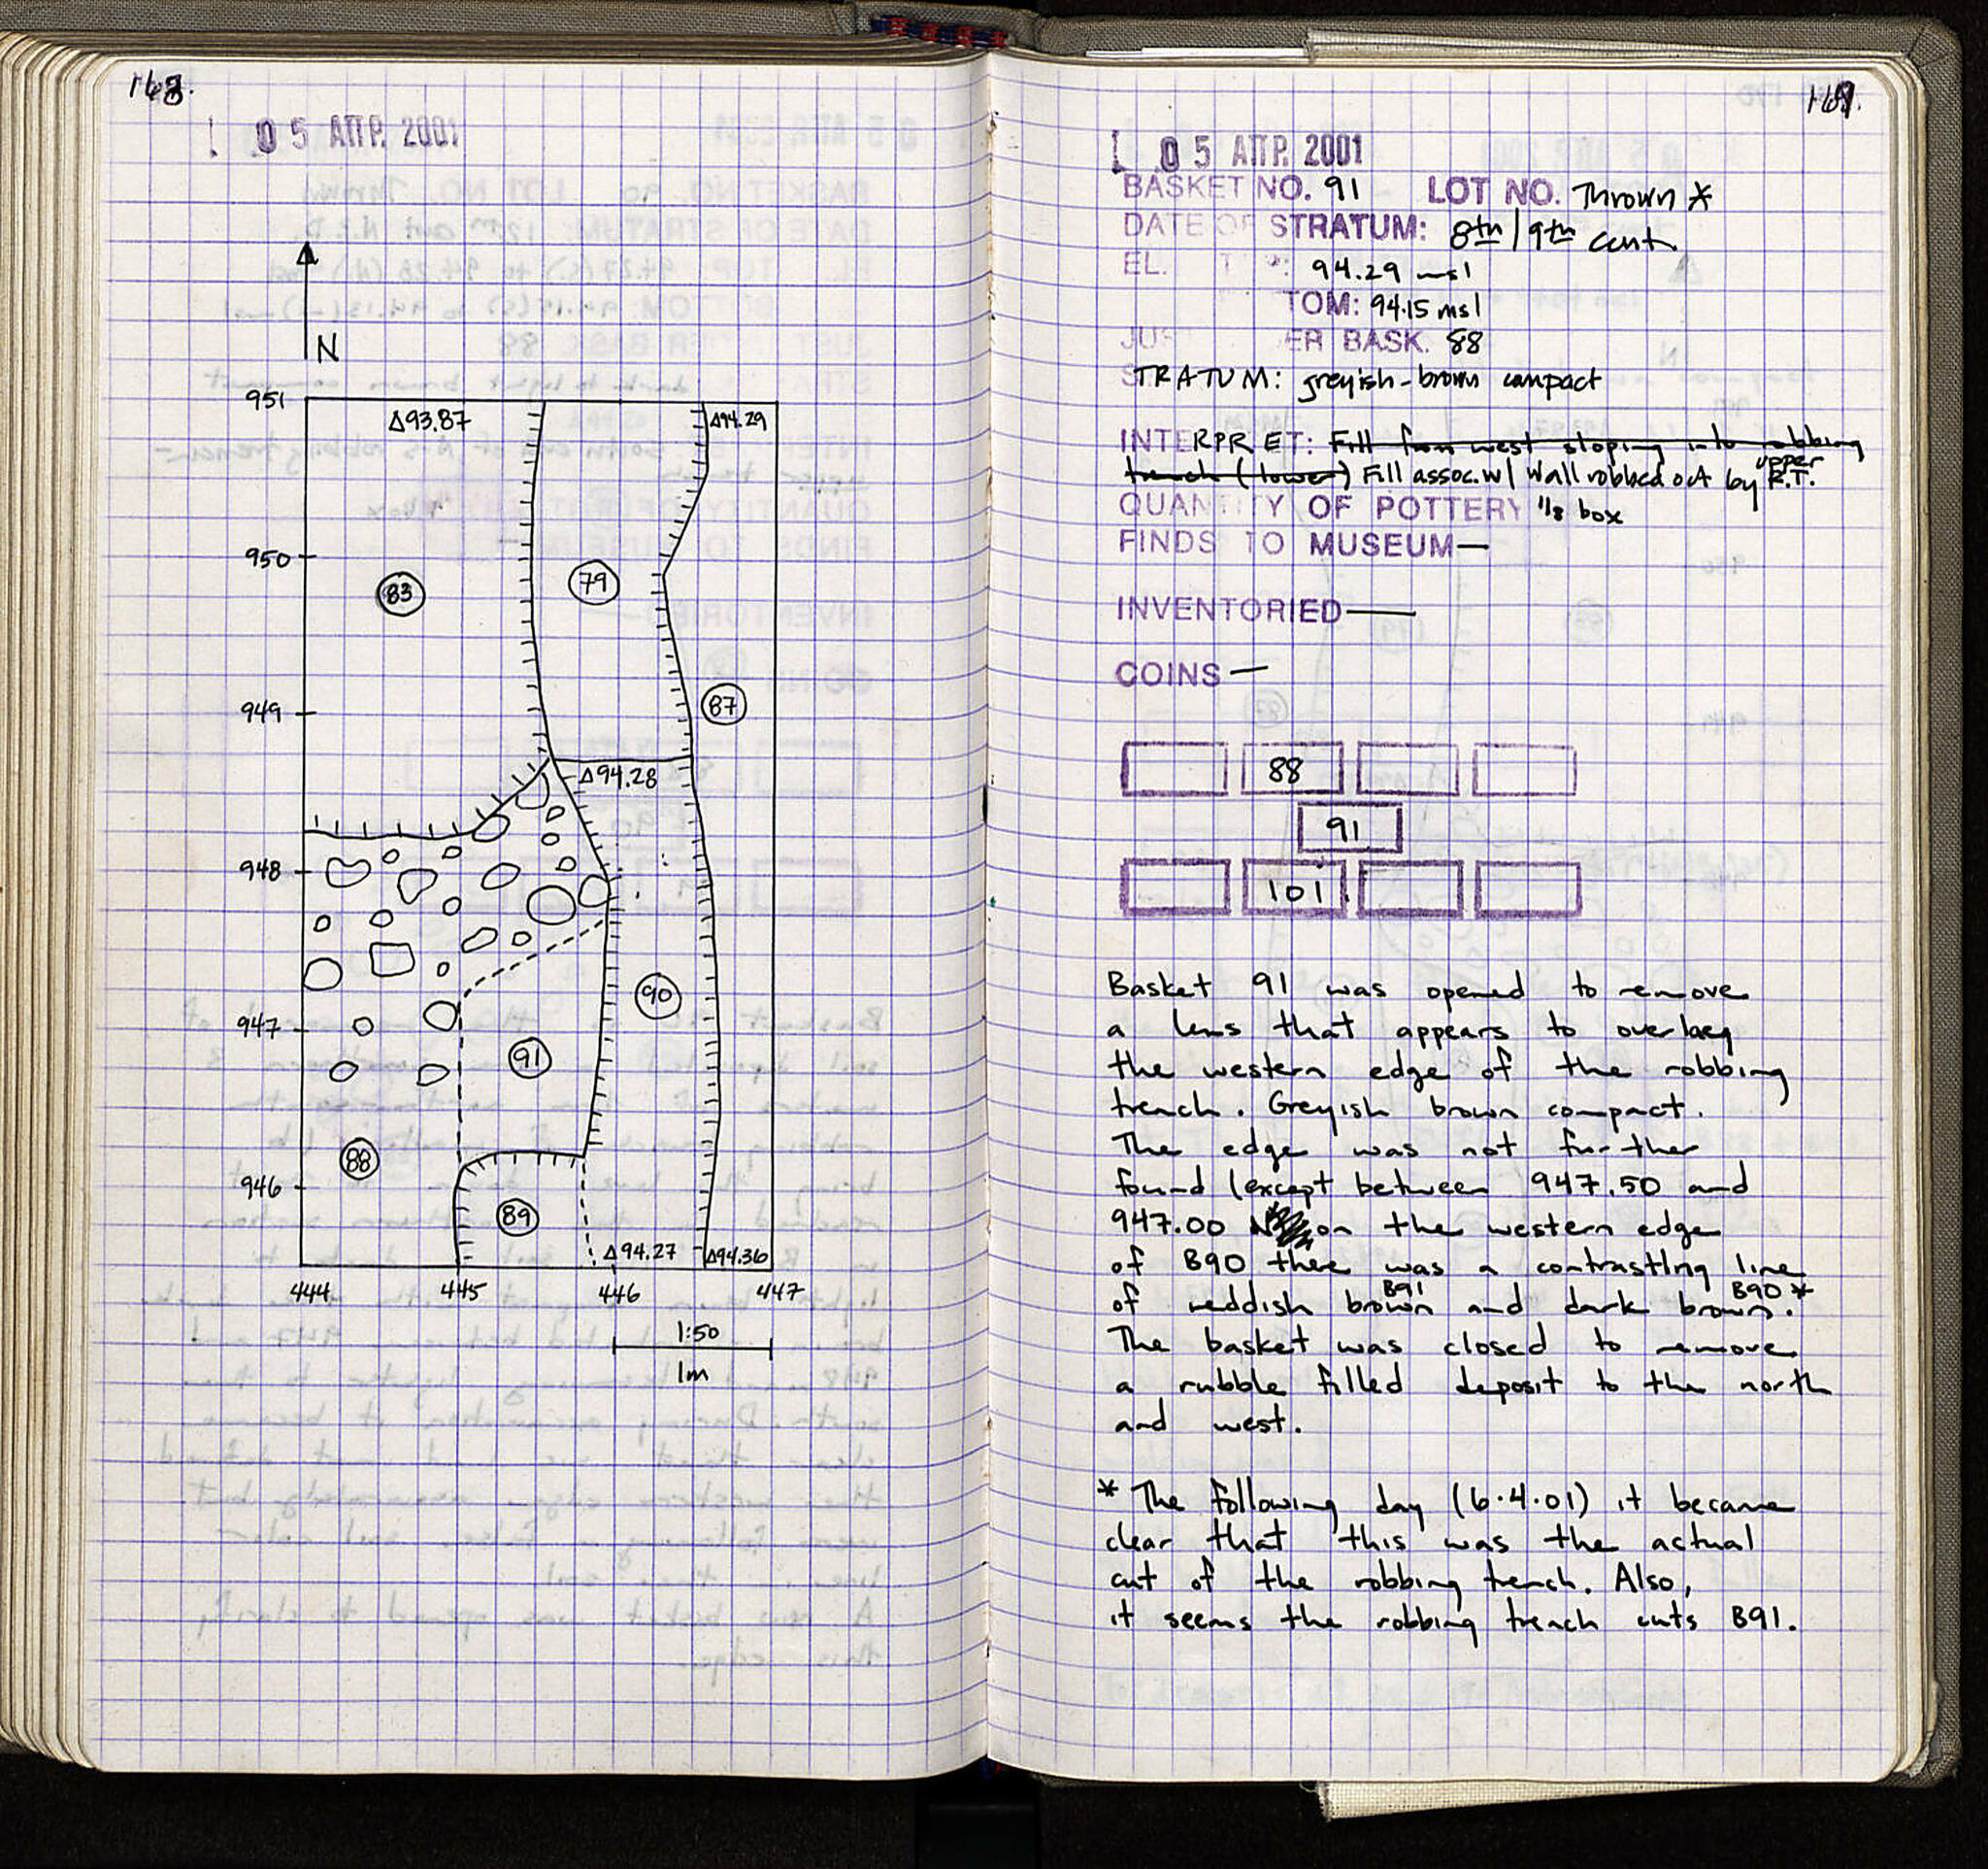 168.
05 ΑΠΡ. 2001
N
951
Δ93.87
Δ94.29
950
83
79
949
87
Δ94.28
948
90
947
91
88
946
89
Δ94.27
Δ94.36
444 445 446 447
1:50
1m
169.
05 ΑΠΡ. 2001
BASKET NO. 91 LOT NO. Thrown *
DATE OF STRATUM: 8th/9th cent.
EL. T P: 94.29 msl
TOM: 94.15 msl
JU ER BASK. 88
STRATUM: greyish-brown compact
INTERPRET: Fill from west sloping into robbing
trench (lower) Fill assoc. w/ wall robbed out by upper R.T.
QUANTITY OF POTTERY 1/8 box
FINDS TO MUSEUM—
INVENTORIED—
COINS—
88
91
101
Basket 91 was opened to remove
a lens that appears to overlay
the western edge of the robbing
trench. Greyish brown compact.
The edge was not further
found (except between 947.50 and
947.00 N on the western edge
of B90 there was a contrasting line
of reddish brown B91 and dark brown B90.*
The basket was closed to remove
a rubble filled deposit to the north
and west.
* The following day (6.4.01) it became
clear that this was the actual
cut of the robbing trench. Also,
it seems the robbing trench cuts B91.